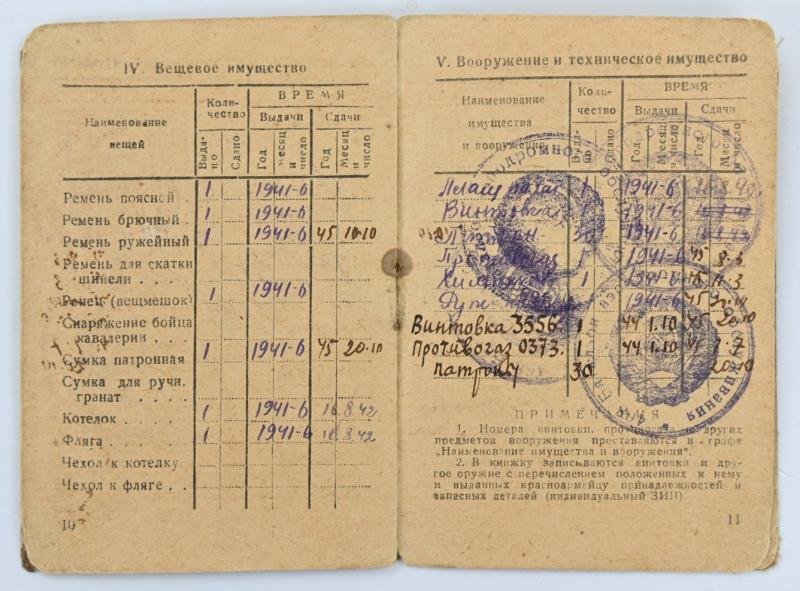 IV. Вещевое имущество
Наименование вещей
Коли-
чество
ВРЕМЯ
Выдачи
Сдачи
Выда-
но
Сдано
Год
Месяц
и
число
Год
Месяц
и
число
Ремень поясной . 1 1941-6
Ремень брючный . 1 1941-6
Ремень ружейный 1 1941-6 45 10-10
Ремень для скатки
шинели . . .
Ренец (вещмешок) 1 1941-6
Снаряжение бойца
кавалерии . . .
Сумка патронная 1 1941-6 45 20-10
Сумка для ручн.
гранат . . . .
Котелок . . . . 1 1941-6 16.8.42
Фляга . . . . . 1 1941-6 16.8.42
Чехол к котелку .
Чехол к фляге . .
10
V. Вооружение и техническое имущество
Наименование
имущества
и вооружения
Коли-
чество
ВРЕМЯ
Выдачи
Сдачи
Выда-
но
Сдано
Год
Месяц
и
число
Год
Месяц
и
число
1 1941-6
Винтовка 1 1941-6
30 1941-6
1 1941-6 45
1
1941-6 45
Винтовка 3556. 1 44 1.10 45 20-10
Противогаз 0373. 1 44 1.10
Патроны 30 20-10
ПРИМЕЧАНИЯ
1. Номера винтовки, противогаза и других
предметов вооружения проставляются в графе
„Наименование имущества и вооружения".
2. В книжку записываются винтовки и дру-
гое оружие с перечислением положенных к нему
и выданных красноармейцу принадлежностей и
запасных деталей (индивидуальный ЗИП)
11